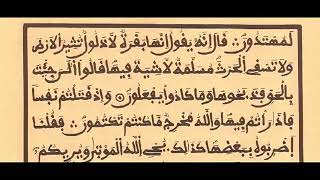 لَمُهْتَدُونَ ۞ قَالَ إِنَّهُ يَقُولُ إِنَّهَا بَقَرَةٌ لَّا ذَلُولٌ تُثِيرُ الْأَرْضَ
وَلَا تَسْقِي الْحَرْثَ مُسَلَّمَةٌ لَّا شِيَةَ فِيهَا قَالُوا الْـَٰٔنَ جِئْتَ
بِالْحَقِّ فَذَبَحُوهَا وَمَا كَادُوا يَفْعَلُونَ ۞ وَإِذْ قَتَلْتُمْ نَفْسًا
فَادَّٰرَٰٔتُمْ فِيهَا وَاللَّهُ مُخْرِجٌ مَّا كُنتُمْ تَكْتُمُونَ ۞ فَقُلْنَا
اضْرِبُوهُ بِبَعْضِهَا كَذَٰلِكَ يُحْيِ اللَّهُ الْمَوْتَىٰ وَيُرِيكُمُ